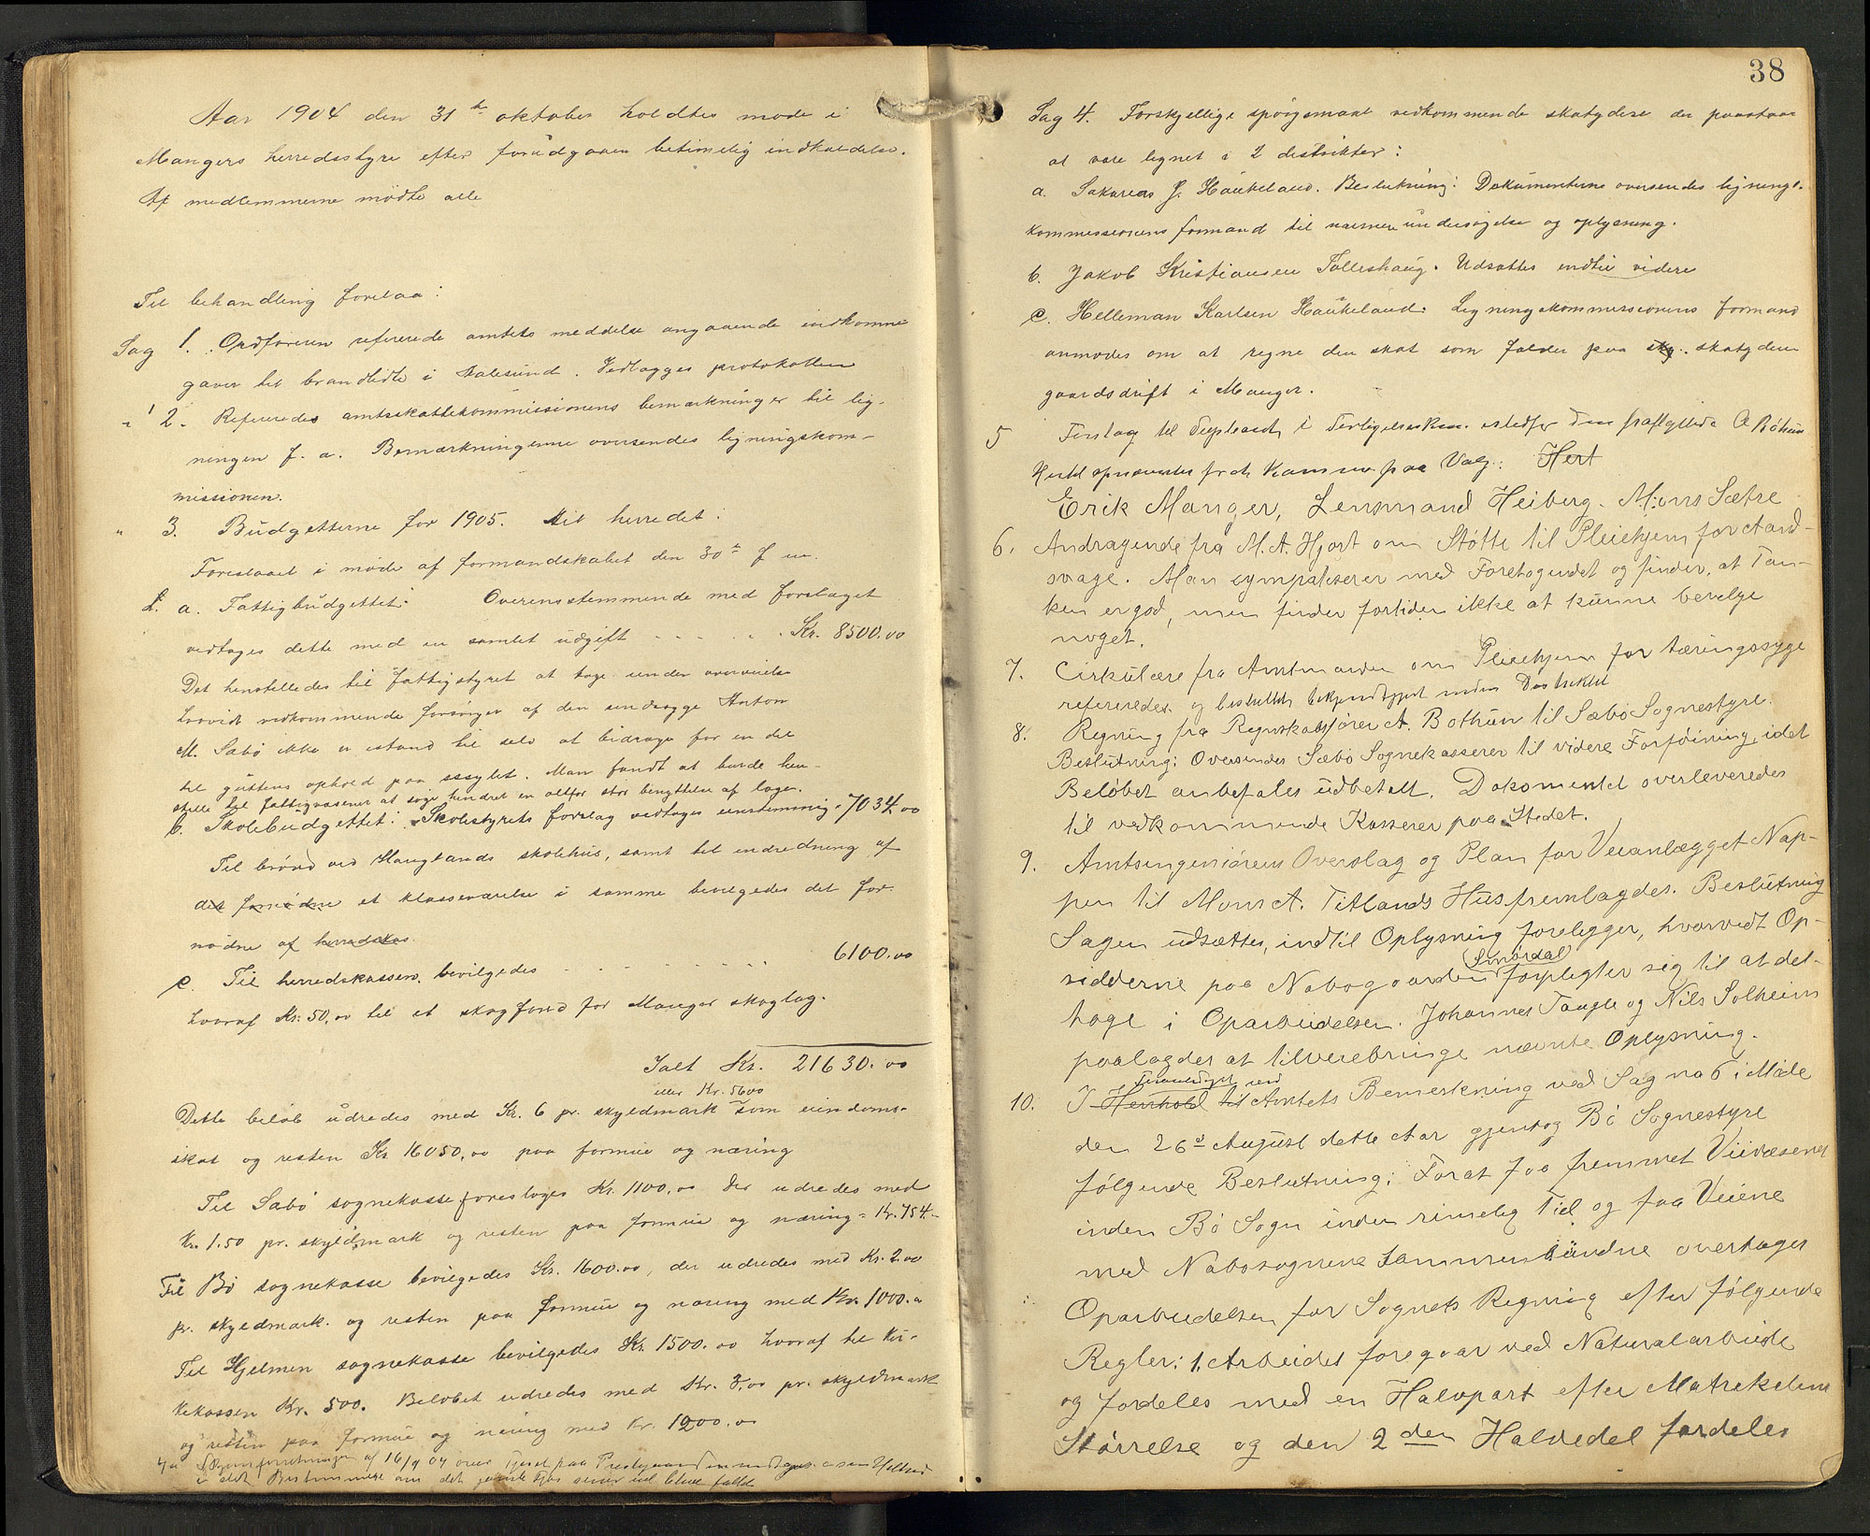 Aar 1904 den 31te oktober holdtes møde i
Mangers herredsstyre efter forudgaaen betimelig indkaldelse.
Af medlemmerne mødte alle
Til behandling forelaa:
Sag 1. Ordføreren refererede amtets meddelse angaaende indkomne
gaver til brandlidte i Aalesund. Vedlægges protokollen
" 2. Refereredes amtsskattekommissionens bemærkninger til lig-
ningen f. a. Bemærkningerne oversendes ligningskom-
missionen.
" 3. Budgetterne for 1905. herredet:
Foreslaaet i møde af formandskabet den 30te f. m.
a. Fattigbudgettet: Overensstemmende med forslaget
vedtages dette med en samlet udgift Kr. 8500.00
Det henstilledes til fattigstyret at tage under overveielse
hvorvidt vedkommende forsørger af den sindssyge Anton
M. Sæbø ikke er istand til selv at bidrage for en del
til guttens ophold paa assylet. Man fandt at burde hen-
stille til fattigvæsenet at søge hindret en altfor stor benyttelse af læge.
b. Skolebudgettet: Skolestyrets forslag vedtages enstemmig 7034.00
Til brønd ved Hauglands skolehus, samt til indredning af
et klasseværelse i samme bevilgedes det for-
nødne af herredskas.
c. Til herredskassen bevilgedes 6100.00
hvoraf Kr. 50,00 til et skogfond for Manger skoglag.
Ialt Kr. 21630.00
eller Kr. 5600
Dette beløb udredes med Kr. 6 pr. skyldmark som eiendoms-
skat og resten Kr 16050,00 paa formue og næring
Til Sæbø sognekasse foreslages Kr. 1100,00 der udredes med
Kr. 1.50 pr. skyldmark og resten paa formue og næring = Kr. 754.-
Til Bø sognekasse bevilgedes Kr. 1600.00, der udredes med Kr. 2.00
pr. skyldmark. og resten paa formue og næring med Kr. 1000.00
Til Hjelmen sognekasse bevilgedes Kr. 1500.00 hvoraf til Kir-
kekassen Kr. 500. Beløbet udredes med Kr. 3,00 pr. skyldmark
og resten paa formue og næring med Kr. 1200.00
af 16/9 04 over paa
om det
38
Sag 4. Forskjellige spørgsmaal vedkommende skatydere der paastaar
at være lignet i 2 distrikter:
a. Sakarias J. Haukeland. Beslutning: Dokumenterne oversendes lignings-
kommissionens formand til nærmere undersøgelse og oplysning.
b. Jakob Kristiansen Tolleshaug. Udsættes indtil videre
c. Helleman Karlsen Haukeland: Ligningskommissionens formand
anmodes om at regne den skat som falder paa sky. skatyderen
gaardsdrift i Manger.
5 Forslag til Suppleant i Forligelseskom. istedfor den fraflyttede A Bóthun
Hertil opnævntes fraa Kommun paa Valg: Hert
Erik Manger, Lensmand Heiberg. Mons Sætre
6. Andragende fra M. A. Hjort om Støtte til Pleiehjem for Aand-
svage. Man sympatiserer med Foretagendet og finder, at Tan-
ken er god, men finder fortiden ikke at kunne bevilge
noget.
7. Cirkulære fra Amtmanden om Pleiehjem for tæringssyge
refereredes og besluttes bekjendtgjort inden Distriktet
8. Regning fra Regnskabsfører A. Bothun til Sæbø Sognestyre.
Beslutning: Oversendes Sæbø Sognekasserer til videre Forføining, idet
Beløbet anbefales udbetalt. Dokomentet overleveredes
til vedkommende Kasserer paa Stedet.
9. Amtsingeniørens Overslag og Plan for Veianlægget Nap-
pen til Mons A. Titlands Hus fremlagdes. Beslutning
Sagen udsættes, indtil Oplysning foreligger, hvorvidt Op-
sidderne paa Nabogaarden Smørdal forpligter sig til at del-
tage i Oparbeidelsen. Johannes Taugle og Nils Solheim
paalagdes at tilveiebringe nævnte Oplysning.
10. I Henhold til Foranlediget ved Amtets Bemerkning ved Sag no 6 i Møde
den 26de August dette Aar gjentog Bø Sognestyre
følgende Beslutning: Forat faa fremmet Veivæsenet
inden Bø Sogn inden rimelig Tid og faa Veiene
med Nabosognene sammenbundne overtages
Oparbeidelsen for Sognets Regning efter følgende
Regler: 1. Arbeidet foregaar ved Naturalarbeide
og fordeles med en Halvpart efter Matrikelens
Størrelse og den 2den Halvedel fordeles